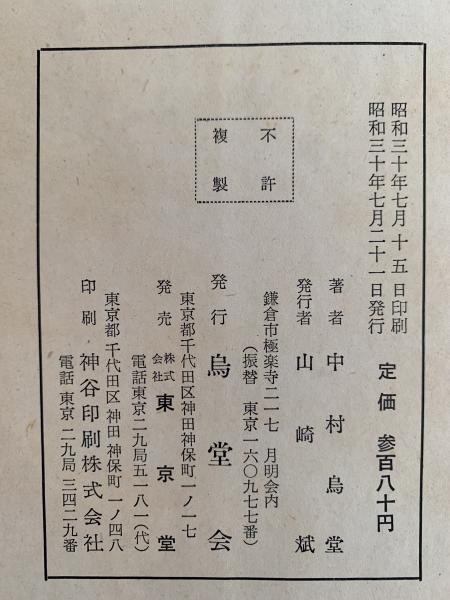 昭和三十年七月十五日印刷
昭和三十年七月二十一日発行
定価 参百八十円
不許
複製
著者 中村烏堂
発行者 山崎斌
鎌倉市極楽寺二一七 月明会内
(振替 東京一六〇九七七番)
発行 烏堂会
東京都千代田区神田神保町一ノ一七
発売 株式会社 東京堂
電話東京二九局五一八一(代)
東京都千代田区神田神保町一ノ四八
印刷 神谷印刷株式会社
電話 東京 二九局 三四二九番